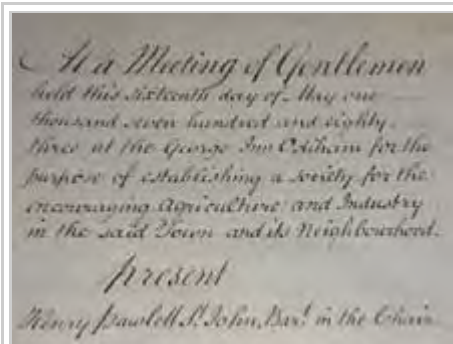 At a Meeting of Gentlemen
held this sixteenth day of May one
thousand seven hundred and eighty
three at the George Inn Odiham for the
purpose of establishing a society for the
encouraging Agriculture and Industry
in the said Town and its Neighbourhood.
present
Henry Pawlett St. John, Bart. in the Chair